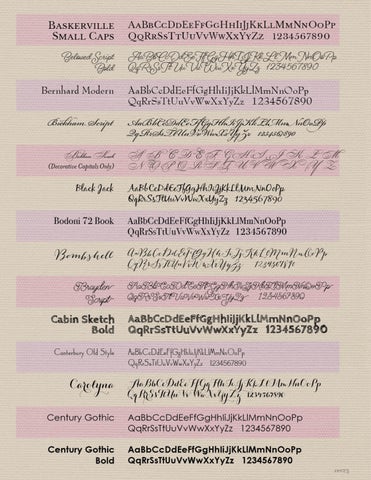 Baskerville AaBbCcDdEeFfGgHhIiJjKkLlMmNnOoPp
Small Caps QqRrSsTtUuVvWwXxYyZz 1234567890
Beloved Script AaBbCcDdEeFfGgHhIiJjKkLlMmNnOoPp
Bold QqRrSsTtUuVvWwXxYyZz 1234567890
Bernhard Modern AaBbCcDdEeFfGgHhIiJjKkLlMmNnOoPp
QqRrSsTtUuVvWwXxYyZz 1234567890
Bickham Script AaBbCcDdEeFfGgHhIiJjKkLlMmNnOoPp
QqRrSsTtUuVvWwXxYyZz 1234567890
A B C D E F G H I J K L M
(Decorative Capitals Only) N O P Q R S T U V W X Y Z
Black Jack AaBbCcDdEeFfGgHhIiJjKkLlMmNnOoPp
QqRrSsTtUuVvWwXxYyZz 1234567890
Bodoni 72 Book AaBbCcDdEeFfGgHhIiJjKkLlMmNnOoPp
QqRrSsTtUuVvWwXxYyZz 1234567890
Bombshell AaBbCcDdEeFfGgHhIiJjKkLlMmNnOoPp
QqRrSsTtUuVvWwXxYyZz 1234567890
Brayden AaBbCcDdEeFfGgHhIiJjKkLlMmNnOoPp
Script QqRrSsTtUuVvWwXxYyZz 1234567890
Cabin Sketch AaBbCcDdEeFfGgHhIiJjKkLlMmNnOoPp
Bold QqRrSsTtUuVvWwXxYyZz 1234567890
Canterbury Old Style AaBbCcDdEeFfGgHhIiJjKkLlMmNnOoPp
QqRrSsTtUuVvWwXxYyZz 1234567890
Carolyna AaBbCcDdEeFfGgHhIiJjKkLlMmNnOoPp
QqRrSsTtUuVvWwXxYyZz 1234567890
Century Gothic AaBbCcDdEeFfGgHhIiJjKkLlMmNnOoPp
QqRrSsTtUuVvWwXxYyZz 1234567890
Century Gothic AaBbCcDdEeFfGgHhIiJjKkLlMmNnOoPp
Bold QqRrSsTtUuVvWwXxYyZz 1234567890